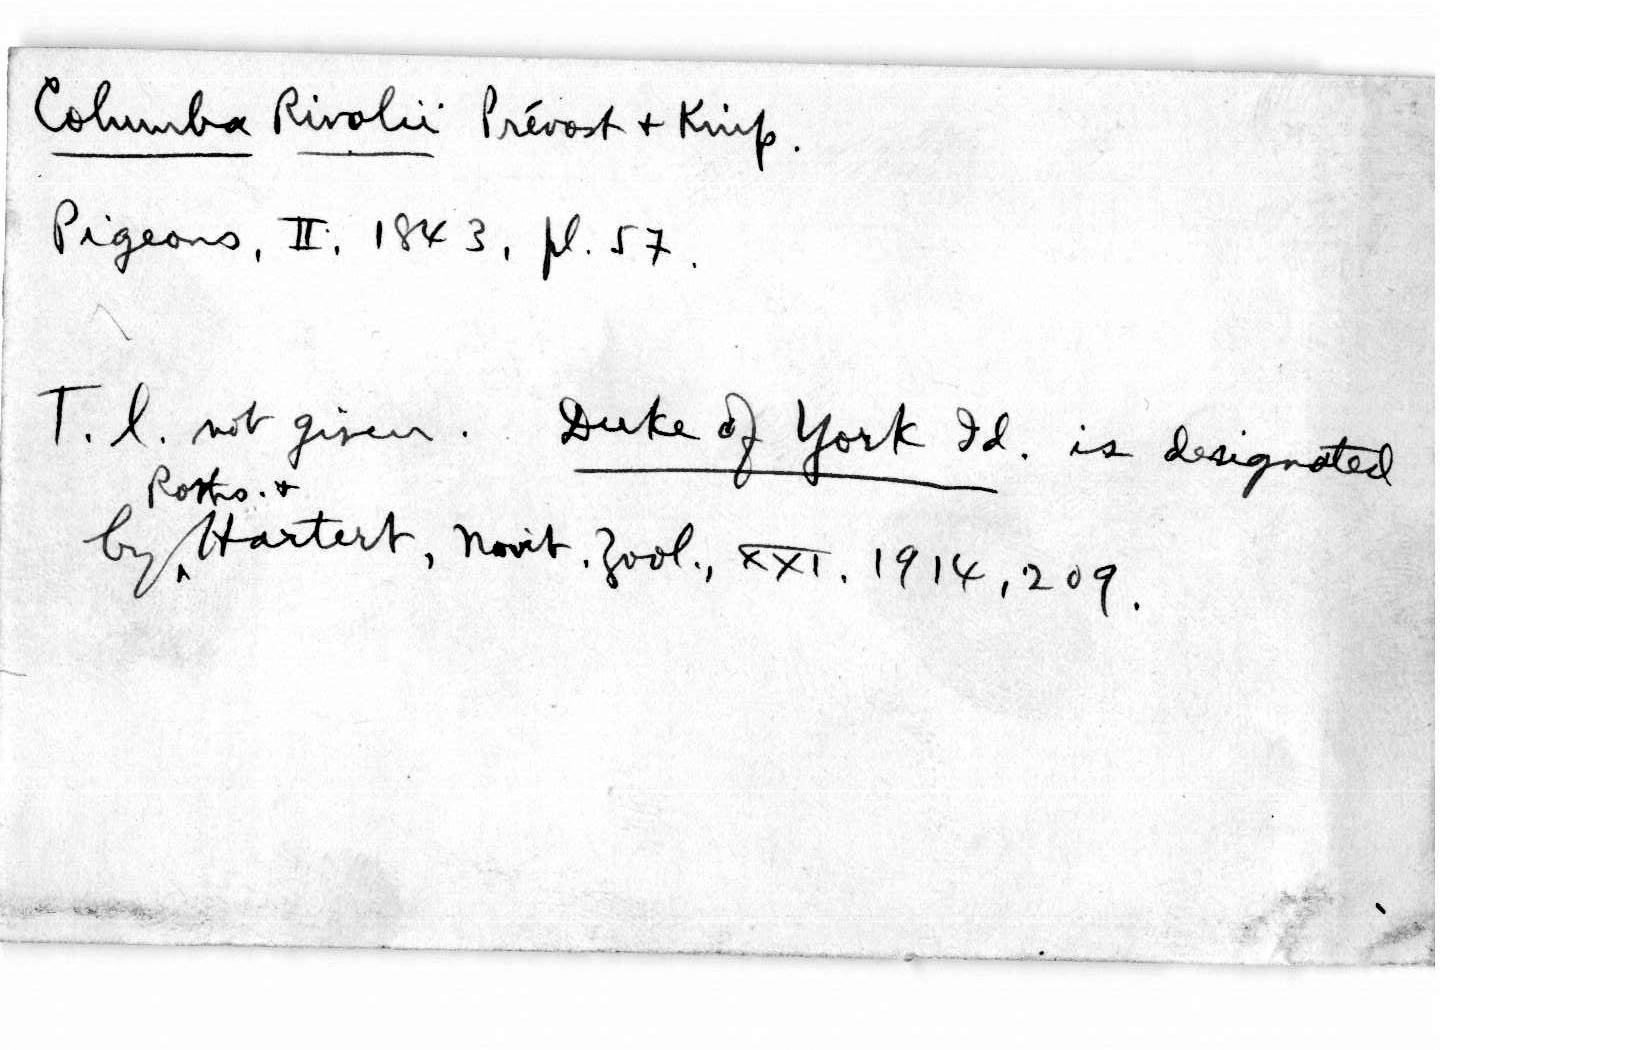 Columba Rivolii Prévost + Knip.
Pigeons, II, 1843, pl. 57.
T. l. not given. Duke of York Id. is designated
Roths. +
by Hartert, Novit. Zool., XXI, 1914, 209.